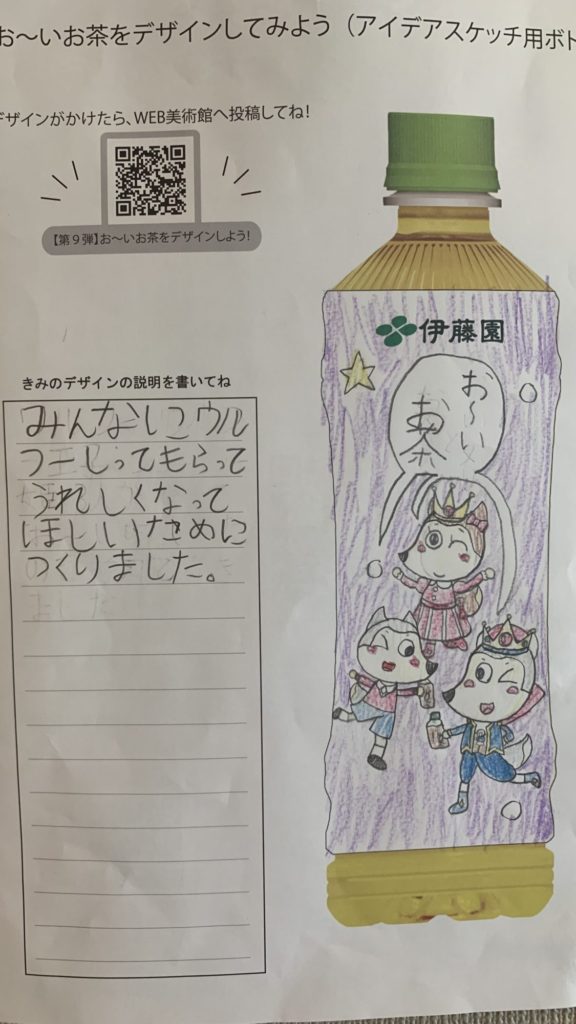 お～いお茶をデザインしてみよう（アイデアスケッチ用ボト
デザインがかけたら、WEB美術館へ投稿してね！
【第９弾】お～いお茶をデザインしよう！
きみのデザインの説明を書いてね
みんなにウル
フーしってもらって
うれしくなって
ほしいためめに
つくりました。
伊藤園
お～い
お茶